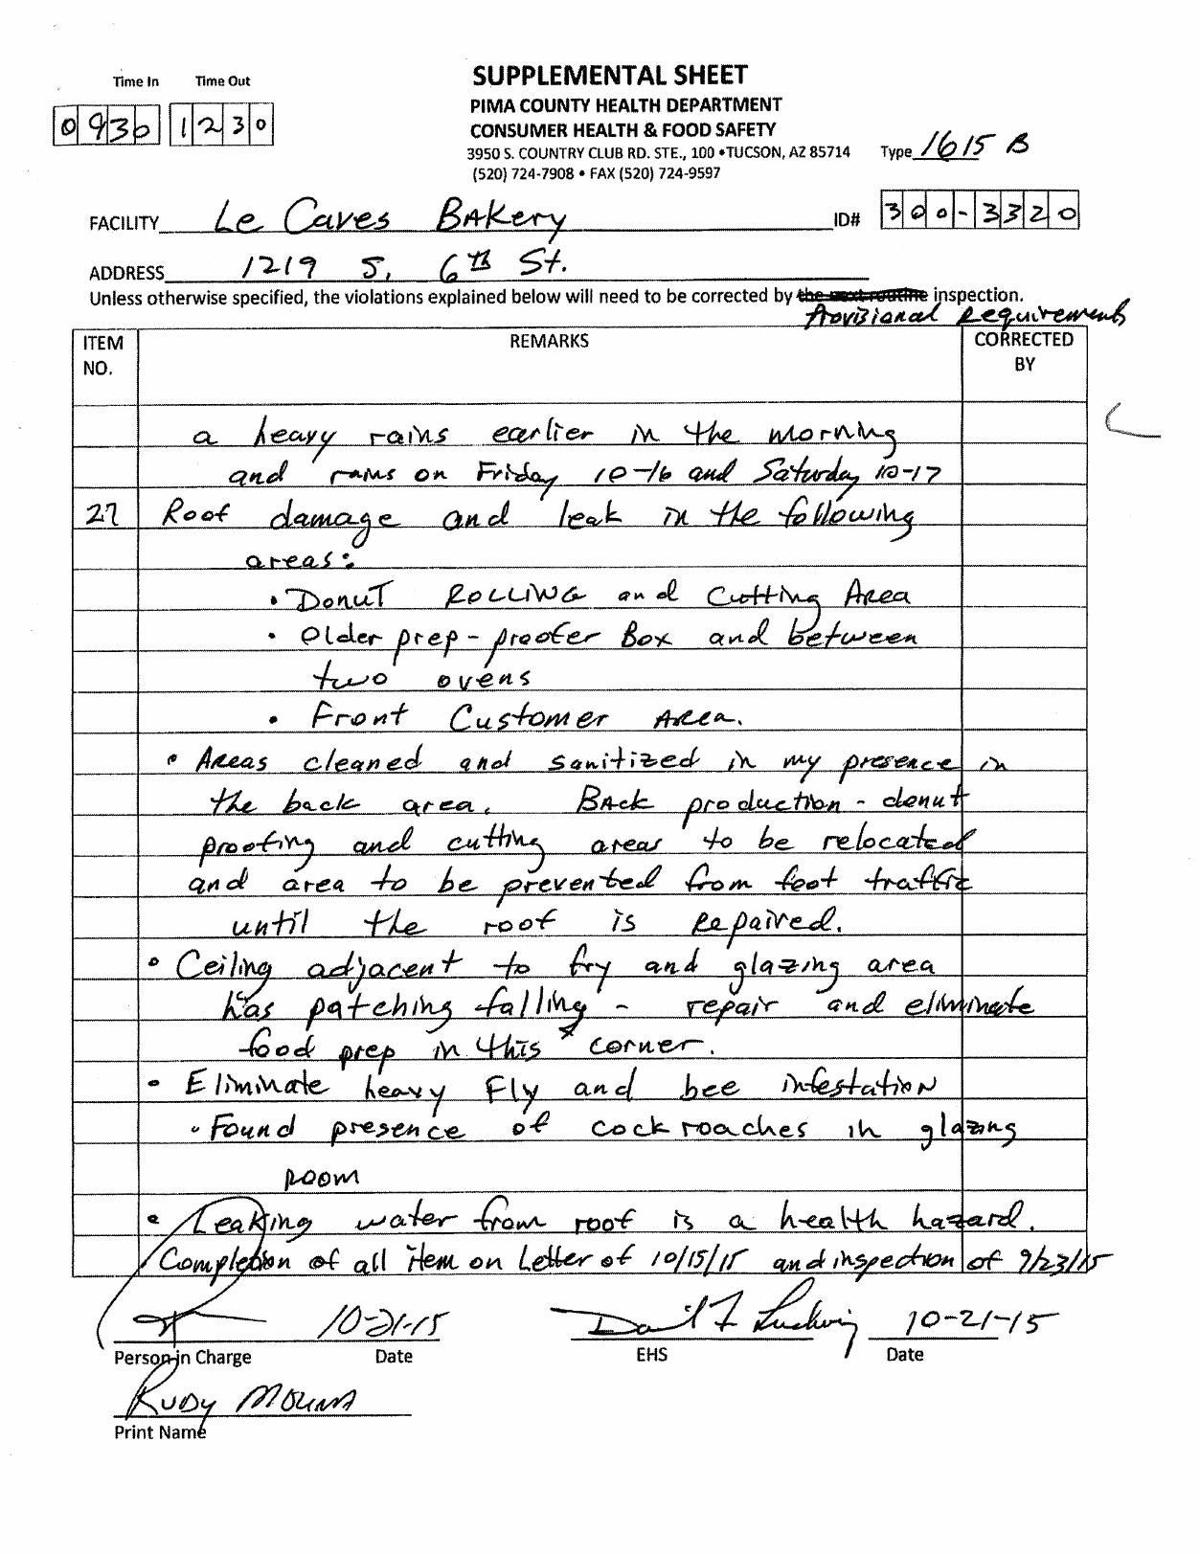 Time In Time Out
0930 1230
SUPPLEMENTAL SHEET
PIMA COUNTY HEALTH DEPARTMENT
CONSUMER HEALTH & FOOD SAFETY
3950 S. COUNTRY CLUB RD. STE., 100 • TUCSON, AZ 85714
(520) 724-7908 • FAX (520) 724-9597
Type 1615 B
FACILITY Le Caves BAKery ID# 300-3320
ADDRESS 1219 S. 6th St.
Unless otherwise specified, the violations explained below will need to be corrected by the next routine inspection.
Provisional Requirements
ITEM NO. REMARKS CORRECTED BY
a heavy rains earlier in the morning
and rains on Friday 10-16 and Saturday 10-17
27 Roof damage and leak in the following
areas:
• Donut ROLLING and Cutting Area
• Older prep-proofer Box and between
two ovens
• Front Customer Area.
• Areas cleaned and sanitized in my presence in
the back area. Back production - donut
proofing and cutting areas to be relocated
and area to be prevented from foot traffic
until the roof is repaired.
• Ceiling adjacent to fry and glazing area
has patching falling - repair and eliminate
food prep in this corner.
• Eliminate heavy Fly and bee infestation
• Found presence of cockroaches in glazing
room
• Leaking water from roof is a health hazard.
Completion of all item on Letter of 10/15/15 and inspection of 9/23/15
10-21-15 10-21-15
Person in Charge Date EHS Date
Rudy
Print Name